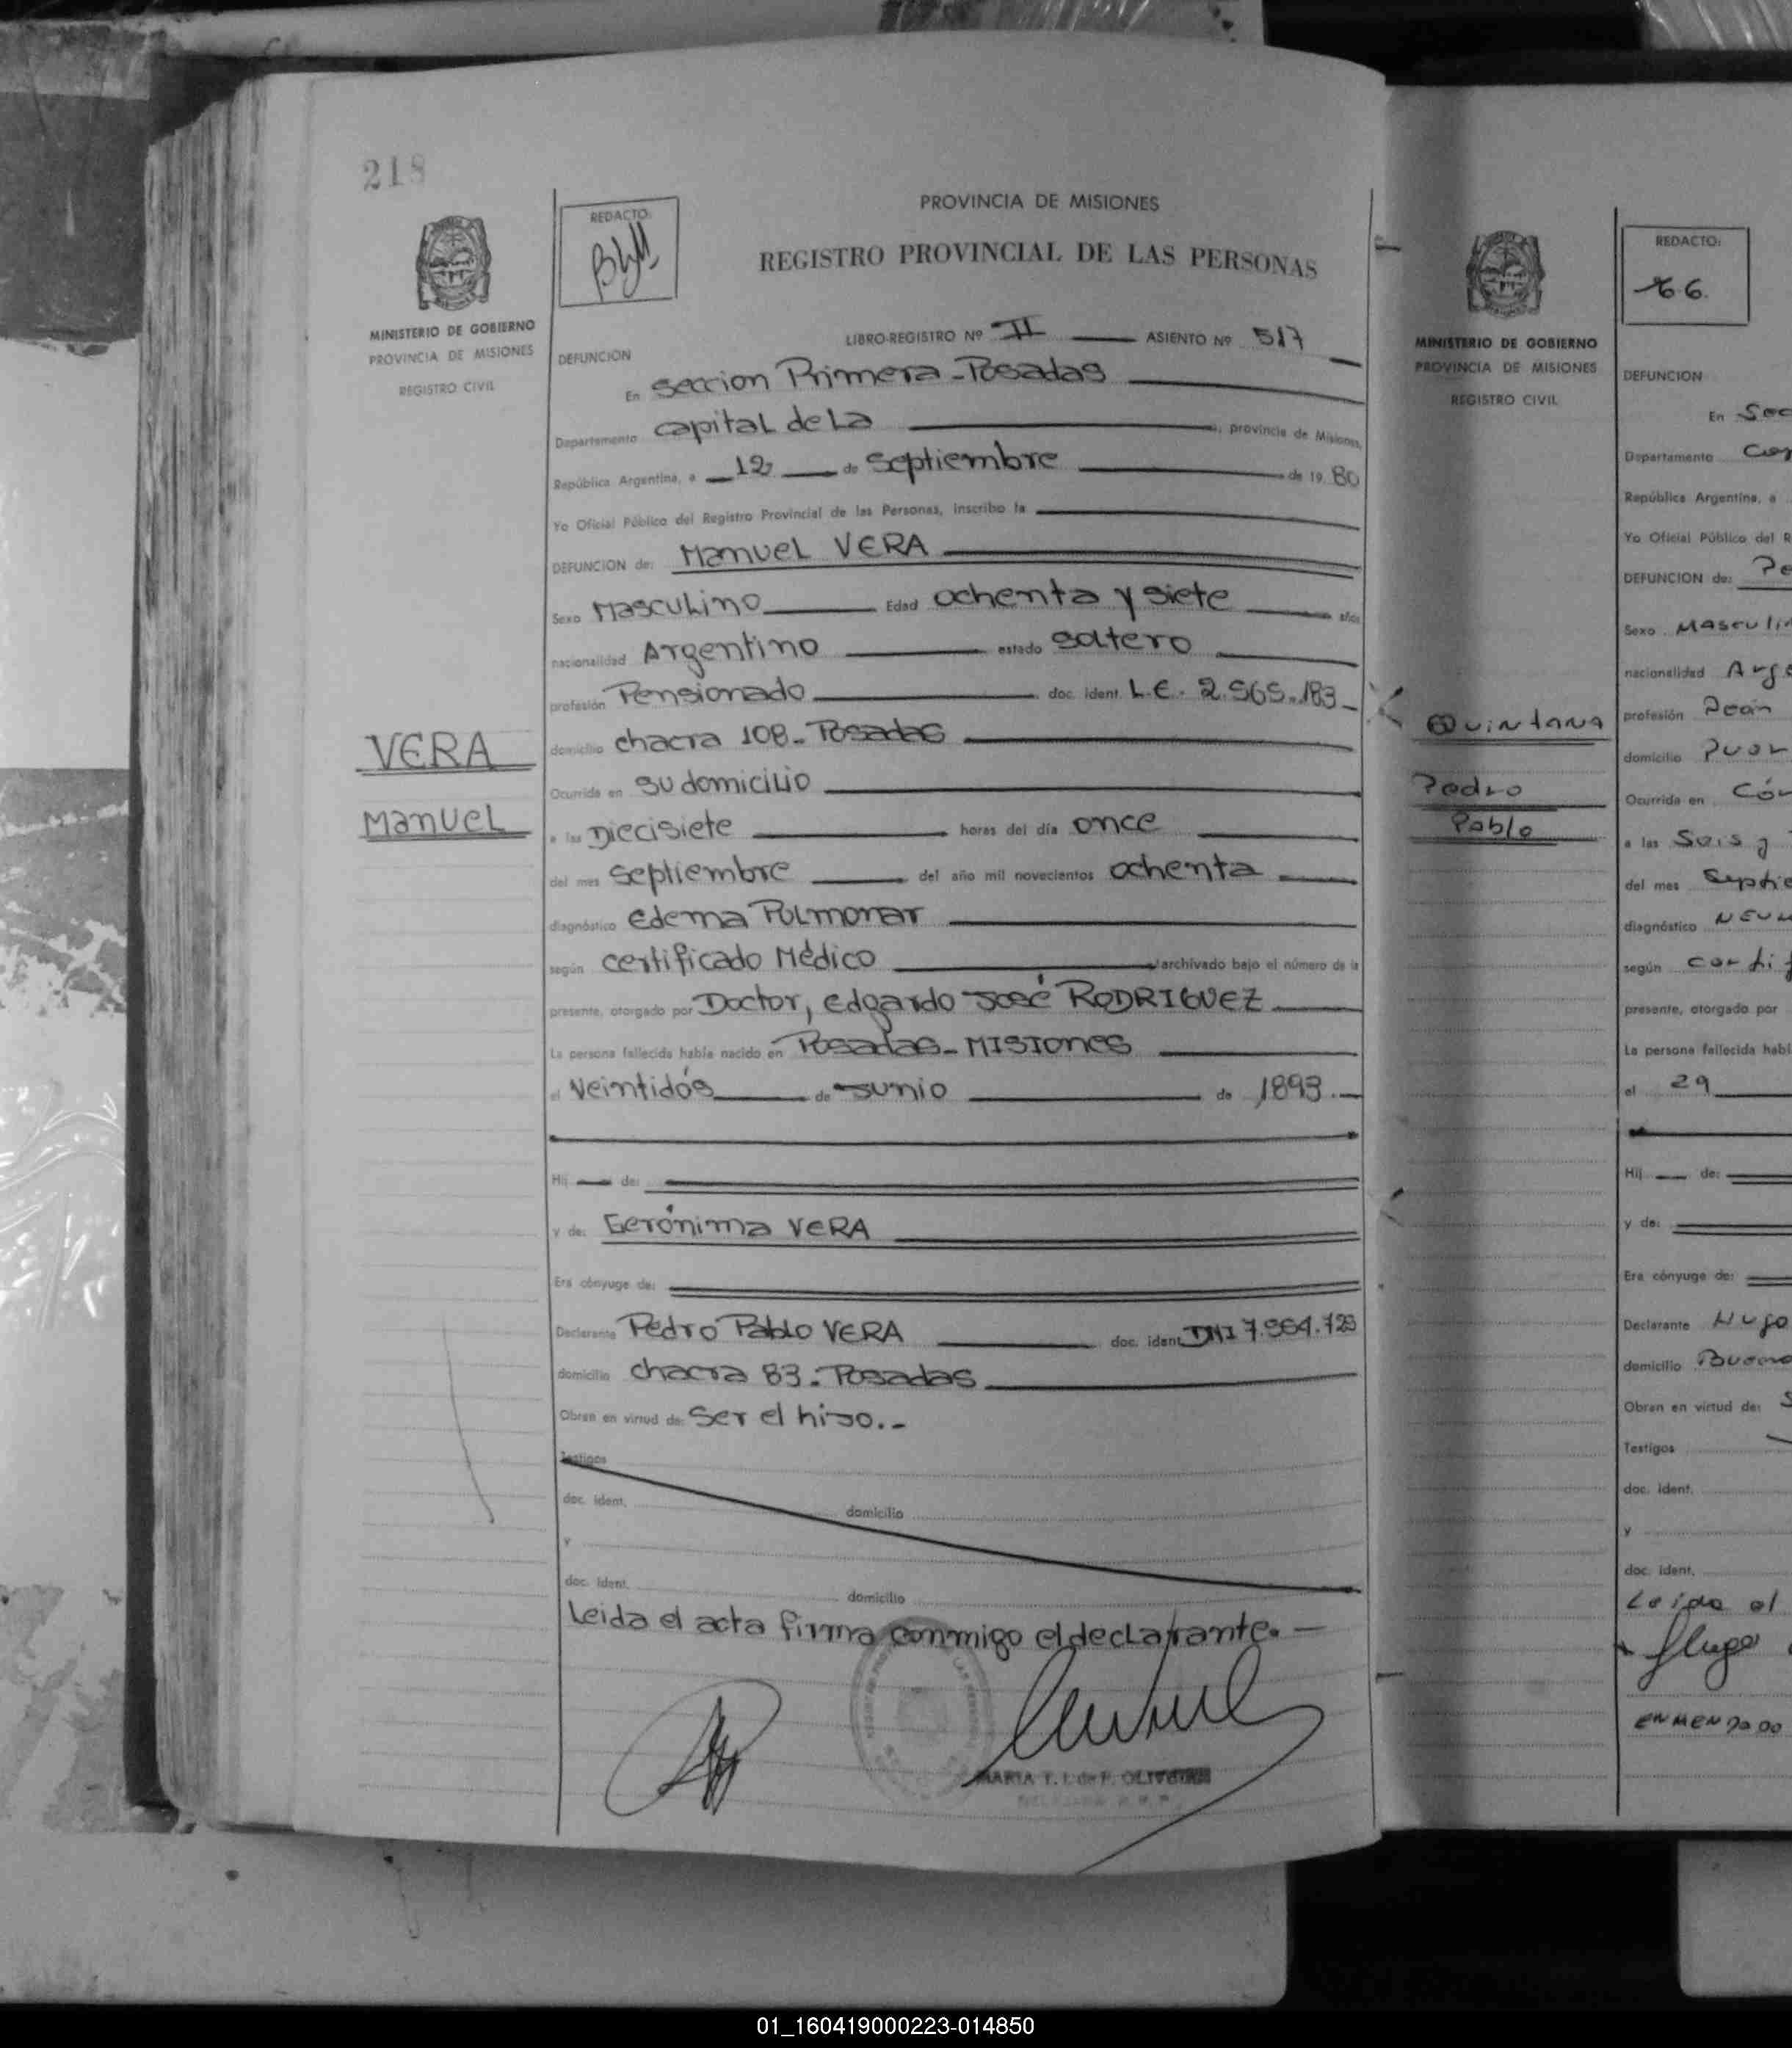 218
MINISTERIO DE GOBIERNO
PROVINCIA DE MISIONES
REGISTRO CIVIL
VERA
Manuel
REDACTO:
PROVINCIA DE MISIONES
REGISTRO PROVINCIAL DE LAS PERSONAS
LIBRO-REGISTRO Nº II ASIENTO Nº 517
DEFUNCION
En Seccion Primera - Posadas
Departamento Capital de La , provincia de Misiones,
República Argentina, a 12 de Septiembre de 19 80
Yo Oficial Público del Registro Provincial de las Personas, inscribo la
DEFUNCION de: Manuel VERA
Sexo Masculino Edad ochenta y siete años
nacionalidad Argentino estado soltero
profesión Pensionado doc. ident. L.E. 2.565.183
domicilio chacra 108 - Posadas
Ocurrida en su domicilio
a las Diecisiete horas del día once
del mes Septiembre del año mil novecientos ochenta
diagnóstico Edema Pulmonar
según certificado Médico archivado bajo el número de la
presente, otorgado por Doctor, Edgardo José RODRIGUEZ
La persona fallecida había nacido en Posadas - MISIONES
el Veintidós de Junio de 1893.
Hij de:
y de: Gerónima VERA
Era cónyuge de:
Declarante Pedro Pablo VERA doc. ident. DNI
domicilio chacra 83 - Posadas
Obran en virtud de: Ser el hijo. -
Testigos
doc. ident. domicilio
y
doc. ident. domicilio
Leida el acta firma conmigo el declarante. -
MARIA T. I. de P. OLIVEIRA
MINISTERIO DE GOBIERNO
PROVINCIA DE MISIONES
REGISTRO CIVIL
Quintana
Pedro
Pablo
REDACTO:
DEFUNCION
En Sec
Departamento Cap
República Argentina, a
Yo Oficial Público del R
DEFUNCION de: Pe
Sexo Masculin
nacionalidad Arge
profesión Peón
domicilio
Ocurrida en Cór
a las Seis y
del mes Septie
diagnóstico Neum
según certif
presente, otorgado por
La persona fallecida habí
el 29
Hij de:
y de:
Era cónyuge de:
Declarante Hugo
domicilio Bueno
Obran en virtud de: S
Testigos
doc. ident.
y
doc. ident.
Leida el
Hugo
ENMENDADO
01_160419000223-014850